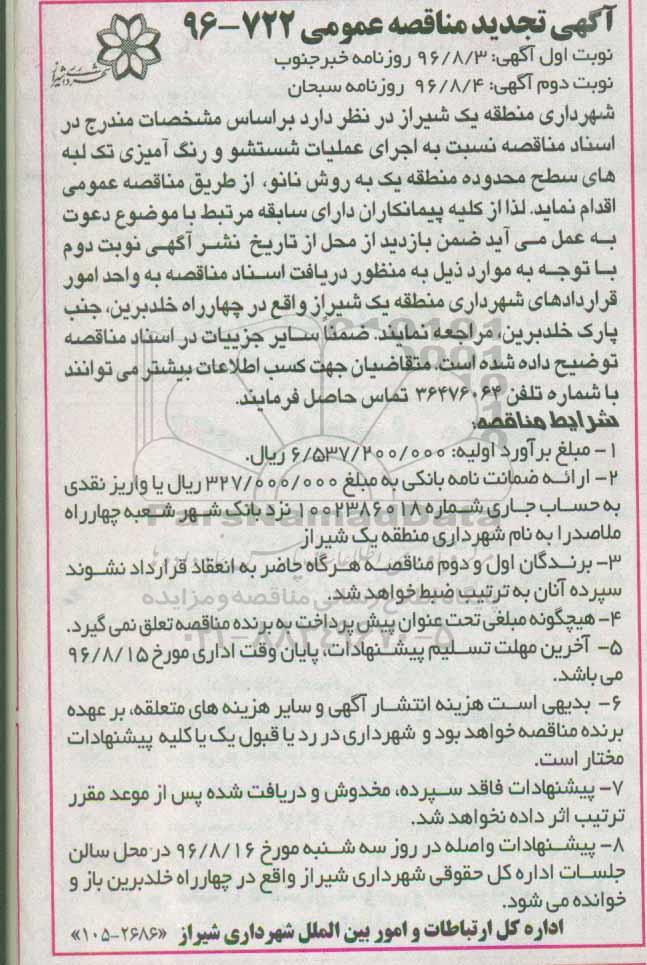 آگهی تجدید مناقصه عمومی ۷۲۲-۹۶
شهرداری شیراز
نوبت اول آگهی: ۹۶/۸/۳ روزنامه خبرجنوب
نوبت دوم آگهی: ۹۶/۸/۴ روزنامه سبحان
شهرداری منطقه یک شیراز در نظر دارد براساس مشخصات مندرج در
اسناد مناقصه نسبت به اجرای عملیات شستشو و رنگ آمیزی تک لبه
های سطح محدوده منطقه یک به روش نانو، از طریق مناقصه عمومی
اقدام نماید. لذا از کلیه پیمانکاران دارای سابقه مرتبط با موضوع دعوت
به عمل می آید ضمن بازدید از محل از تاریخ نشر آگهی نوبت دوم
با توجه به موارد ذیل به منظور دریافت اسناد مناقصه به واحد امور
قراردادهای شهرداری منطقه یک شیراز واقع در چهارراه خلدبرین، جنب
پارک خلدبرین، مراجعه نمایند. ضمناً سایر جزییات در اسناد مناقصه
توضیح داده شده است. متقاضیان جهت کسب اطلاعات بیشتر می توانند
با شماره تلفن ۳۶۴۷۶۰۶۴ تماس حاصل فرمایند.
شرایط مناقصه:
۱- مبلغ برآورد اولیه: ۶/۵۳۷/۲۰۰/۰۰۰ ریال.
۲- ارائه ضمانت نامه بانکی به مبلغ ۳۲۷/۰۰۰/۰۰۰ ریال یا واریز نقدی
به حساب جاری شماره ۱۰۰۲۳۸۶۰۱۸ نزد بانک شهر شعبه چهارراه
ملاصدرا به نام شهرداری منطقه یک شیراز
۳- برندگان اول و دوم مناقصه هرگاه حاضر به انعقاد قرارداد نشوند
سپرده آنان به ترتیب ضبط خواهد شد.
۴- هیچگونه مبلغی تحت عنوان پیش پرداخت به برنده مناقصه تعلق نمی گیرد.
۵- آخرین مهلت تسلیم پیشنهادات، پایان وقت اداری مورخ ۹۶/۸/۱۵
می باشد.
۶- بدیهی است هزینه انتشار آگهی و سایر هزینه های متعلقه، بر عهده
برنده مناقصه خواهد بود و شهرداری در رد یا قبول یک یا کلیه پیشنهادات
مختار است.
۷- پیشنهادات فاقد سپرده، مخدوش و دریافت شده پس از موعد مقرر
ترتیب اثر داده نخواهد شد.
۸- پیشنهادات واصله در روز سه شنبه مورخ ۹۶/۸/۱۶ در محل سالن
جلسات اداره کل حقوقی شهرداری شیراز واقع در چهارراه خلدبرین باز و
خوانده می شود.
اداره کل ارتباطات و امور بین الملل شهرداری شیراز «۲۶۸۶-۱۰۵»
ParsNamadData
پایگاه اطلاع رسانی مناقصه و مزایده
۰۲۱-۸۸۳۴۹۶۷۰-۵